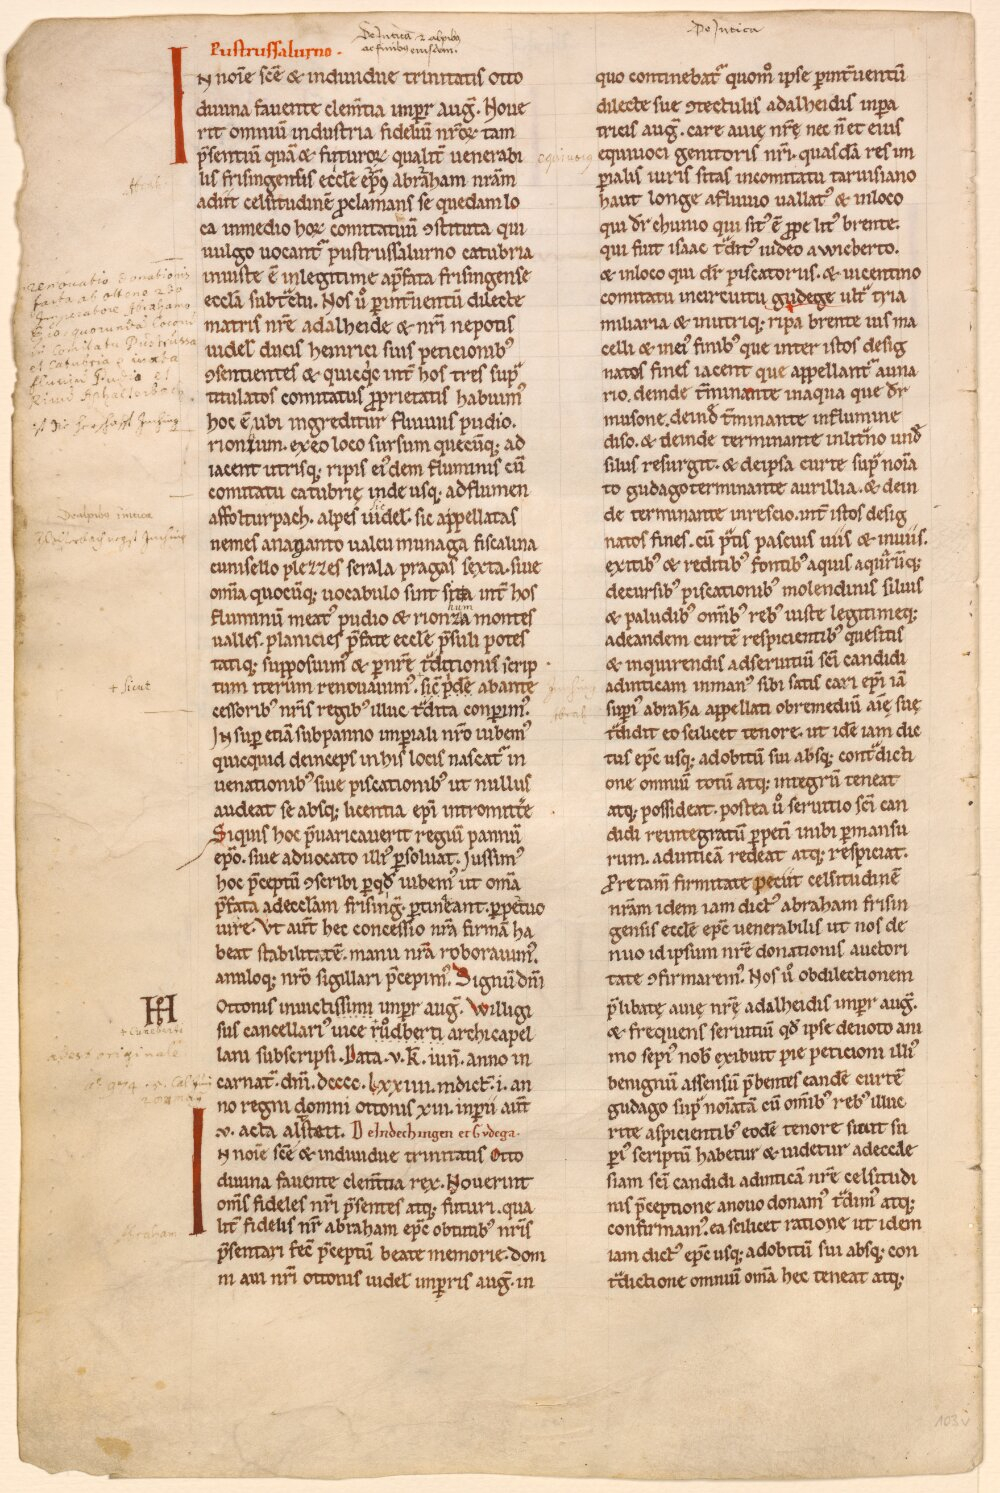 De Intica & alpibus
ac finibus eiusdem.
De Intica
Pustrussalurno.
IN noīe scē & indiuidue trinitatis otto
diuina fauente clem̄tia imp̄r auḡ. Noue
rit omniū industria fideliū nr̄oꝝ tam
p̄sentiū quā & futuroꝝ qualit̄ uenerabi
lis frisingensis eccl̄e ep̄s abraham nrām
adiit celsitudinē ꝓclamans se quedam lo
ca in medio hoꝝ comitatuū ꝯstituta qui
uulgo uocant̄ pustrussalurno catubria
iniuste ē inlegitime ap̄fata frisingense
eccl̄a subtᵃctū. Nos ů p̄ int̄uentū dilecte
matris nrē adalheide & nr̄i nepotis
uidel̄ ducis heinrici suis peticionibꝰ
ꝯsentientes & quicq̇c int̄ hos tres sup̄
titulatos comitatus ꝓprietatis habuimꝰ
hoc ē ubi ingreditur fluuius pudio.
rionzum. ex eo loco sursum quecūq; ad
iacent utrisq; ripis ei dem fluminis cū
comitatu catubrie inde usq. ad flumen
affolturpach. alpes uidel̄. sic appellatas
nemes ananto ualcumunaga fiscalina
cunisello plezzes serala pragas sexta. siue
om̄ia quocūq; uocabulo sint sita int̄ hos
fluminū meatꝰ pudio & rionza montes
num
ualles. planicies p̄fate eccl̄e p̄suli potes
tatiq; supposuimꝰ & p̄ nrē tᵃditionis scrip
tum iterum renouauimꝰ. sic̄ p̄dē abante
cessoribꝰ nr̄is regibꝰ illuc tᵃdita conp̄imꝰ.
In sup̄ etiā sub panno imp̄iali nr̄o iubemꝰ
quicquid deinceps in his locis nascat̄ in
uenationibꝰ siue piscationibꝰ ut nullus
audeat se absq; licentia ep̄i intromitt̄e
Siquis hoc p̄uaricauerit regiū pannū
ep̄o. siue aduocato illiꝰ p̄soluat. Jussimꝰ
hoc p̄ceptū ꝯscribi p̄ qd̄ iubemꝰ ut om̄ia
p̄fata ad eccl̄am frisinḡ. p̄tineant. p̄petuo
iure. Ut aut̄ hec concessio nrā firmā ha
beat stabilitatē. manu nrā roborauimꝰ.
anuloq; nrō sigillari p̄cepimꝰ. Signū dn̄i
Ottonis inuictissimi imp̄r auḡ. Willigi
sus cancellariꝰ uice růdberti archicapel
lani subscripsi. Data .v. k̄. iun̄. anno in
carnat̄. dn̄i. dcccc. lxxiiii. indict̄. i. an
no regni domni ottonis xiii. inp̄ii aut̄
.v. acta alstett. De Indechingen et Gudega.
IN noīe scē & indiuidue trinitatis Otto
diuina fauente clem̄tia rex. Nouerint
om̄s fideles nr̄i p̄sentes atq; futuri. qua
lit̄ fidelis nr̄ abraham ep̄c obtutibꝰ nr̄is
p̄sentari fec̄ p̄ceptū beate memorie. dom
ni aui nr̄i ottonis uidel̄ imp̄ris auḡ. in
quo continebat̄ quom̊ ipse p̄ int̄uentū
dilecte sue ꝯtectulis adalheidis inpa
tricis auḡ. care auię nrē nec n̄ et eius
equiuoci genitoris nr̄i. quasdā res im
p̄ialis iuris sitas in comitatu taruisiano
haut longe a fluuio uallatꝰ & in loco
qui dr̄ chunio qui sitꝰ ē ꝓpe litꝰ brente.
qui fuit isaac tᵃditꝰ iudeo a wicberto.
& in loco qui dr̄ piscatorius. & uicentino
comitatu in circuitu gudege ultᵃ tria
miliaria & in utriq; ripa brente uis ma
celli & in ei finibꝰ que inter istos desig
natos fines iacent que appellant̄ auna
rio. deinde t̄minante in aqua que dr̄
musone. deind̄ t̄minante in flumine
diso. & deinde terminante in litino und̄
silus resurgit. & de ipsa curte sup̄ noīa
to gudago terminante aurillia. & dein
de terminante in rescio. int̄ istos desig
natos fines. cū p̄tis pascuis uiis & inuiis.
exitibꝰ & reditibꝰ fontibꝰ aquis aquarūq;
decursibꝰ piscationibꝰ molendinis siluis
& paludibꝰ om̄ibꝰ rebꝰ iuste legitimeq;
ad eandem curtē respicientibꝰ quesitis
& inquirendis ad seruitiū sc̄i candidi
ad inticam in manꝰ sibi satis cari ep̄i iā
sup̄i abrahā appellati ob remediū aīę suę
tᵃdidit eo scilicet tenore. ut idē iam dic
tus ep̄c usq; ad obitū sui absq; contᵃdicti
one omniū totū atq; integrū teneat
atq; possideat. postea ů seruitio sc̄i can
didi reintegratū p̄peti inibi p̄mansu
rum. ad inticā redeat atq; respiciat.
Pro re tam̄ firmitate peciit celsitudinē
nrām idem iam dictꝰ abraham frisin
gensis eccl̄e ep̄c uenerabilis ut nos de
nuo id ipsum nrē donationis auctori
tate ꝯfirmaremꝰ. Nos ů ob dilectionem
p̄libatę auię nrē adalheidis imp̄r auḡ.
& frequens seruitiū qd̄ ipse deuoto ani
mo sepiꝰ nob̄ exibuit pie peticioni illiꝰ
benignū assensū p̄bentes eandē curtē
gudago sup̄ noīatā cū om̄ibꝰ rebꝰ illuc
rite aspicientibꝰ eodē tenore sicut su
p̄iꝰ scriptū habetur & uidetur ad eccle
siam sc̄i candidi ad inticā nrē celsitudi
nis p̄ceptione a nouo donamꝰ tᵃdimꝰ atq;
confirmamꝰ. ea scilicet ratione ut idem
iam dictꝰ ep̄c usq; ad obitū sui absq; con
tᵃdictione omniū om̄ia hec teneat atq;
renouatio donationis
facta ab ottone 2do
Imperatore Abrahamo
in Comitatu Pustrussa
et Catubria
+ sicut
adest originale
Abraham
103v